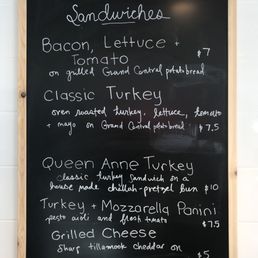 Sandwiches
Bacon, Lettuce +
Tomato $7
on grilled Grand Central potato bread
Classic Turkey
oven roasted turkey, lettuce, tomato
+ mayo on Grand Central potato bread $7.5
Queen Anne Turkey
classic turkey sandwich on a
house made challah-pretzel bun $10
Turkey + Mozzarella Panini
pesto aioli and fresh tomato $7.5
Grilled Cheese
sharp tillamook cheddar on
$5